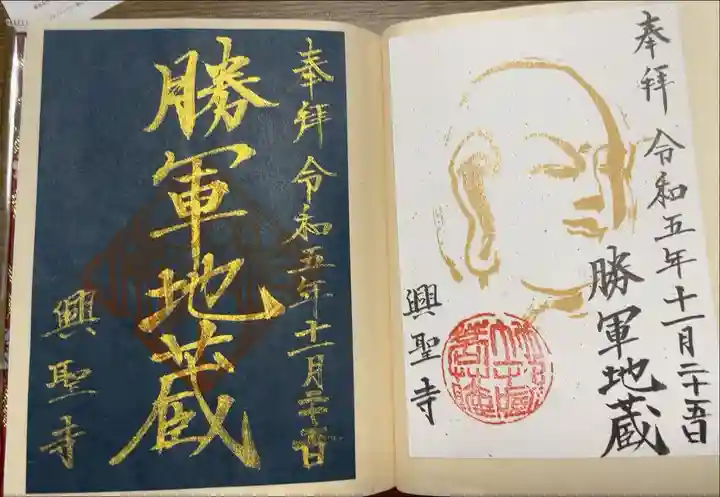 奉拝 令和五年十一月二十五日
勝軍地蔵
興聖寺
奉拝 令和五年十一月二十五日
勝軍地蔵
興聖寺